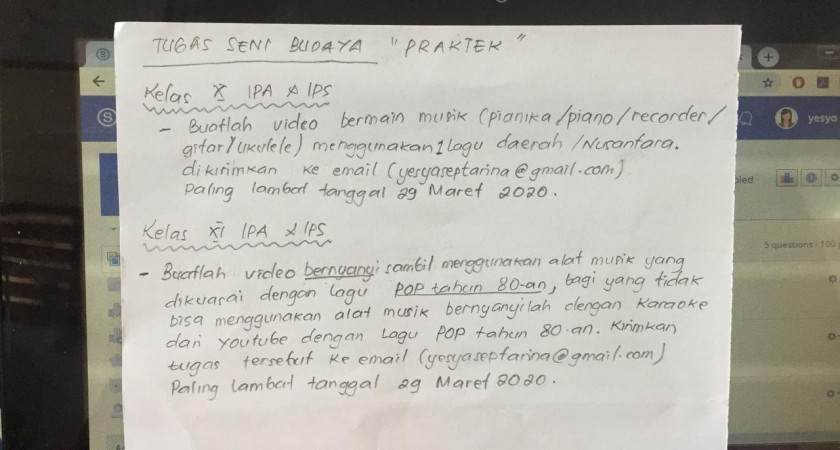 TUGAS SENI BUDAYA "PRAKTEK"
Kelas X IPA & IPS
- Buatlah video bermain musik (pianika/piano/recorder/
gitar/ukulele) menggunakan 1 lagu daerah/Nusantara.
dikirimkan ke email (yesyaseptarina@gmail.com)
Paling lambat tanggal 29 Maret 2020.
Kelas XI IPA & IPS
- Buatlah video bernyanyi sambil menggunakan alat musik yang
dikuasai dengan lagu POP tahun 80-an, bagi yang tidak
bisa menggunakan alat musik bernyanyilah dengan Karaoke
dari Youtube dengan Lagu POP tahun 80-an. Kirimkan
tugas tersebut ke email (yesyaseptarina@gmail.com)
Paling lambat tanggal 29 Maret 2020.
yesya
5 questions - 100